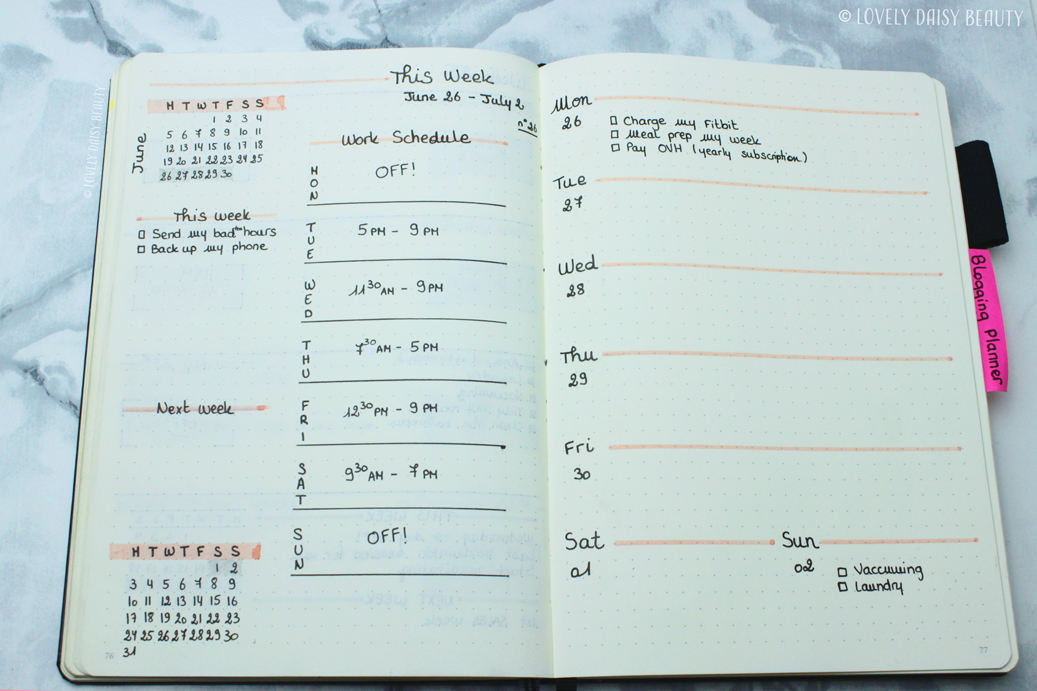 © LOVELY DAISY BEAUTY
© LOVELY DAISY BEAUTY
This Week
June 26 - July 2
n° 26
June
M T W T F S S
1 2 3 4
5 6 7 8 9 10 11
12 13 14 15 16 17 18
19 20 21 22 23 24 25
26 27 28 29 30
This week
Send my bad hours
Back up my phone
Next week
M T W T F S S
1 2
3 4 5 6 7 8 9
10 11 12 13 14 15 16
17 18 19 20 21 22 23
24 25 26 27 28 29 30
31
76
Work Schedule
MON OFF!
TUE 5 PM - 9 PM
WED 11 30 AM - 9 PM
THU 7 30 AM - 5 PM
FRI 12 30 PM - 9 PM
SAT 9 30 AM - 7 PM
SUN OFF!
Mon
26
Charge my Fitbit
Meal prep my week
Pay OVH (yearly subscription)
Tue
27
Wed
28
Thu
29
Fri
30
Sat
01
Sun
02
Vaccuuming
Laundry
77
Blogging planner